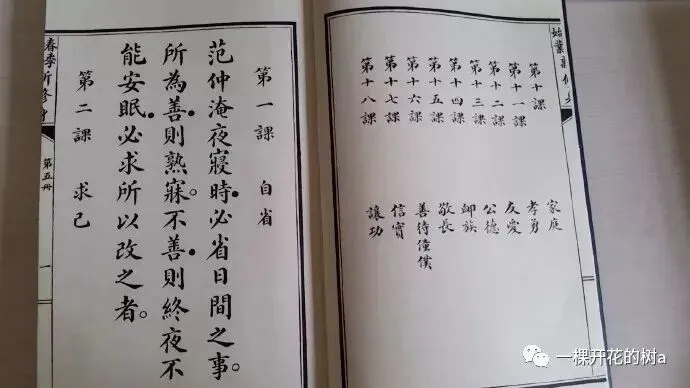 第十課 家庭
第十一課 孝勇
第十二課 友愛
第十三課 公德
第十四課 卹族
第十五課 敬長
第十六課 善待僮僕
第十七課 信實
第十八課 讓功
第一課 自省
范仲淹夜寢時．必省日間之事。
所為善．則熟寐。不善．則終夜不
能安眠．必求所以改之者。
第二課 求己
第五冊
一
一棵开花的树a